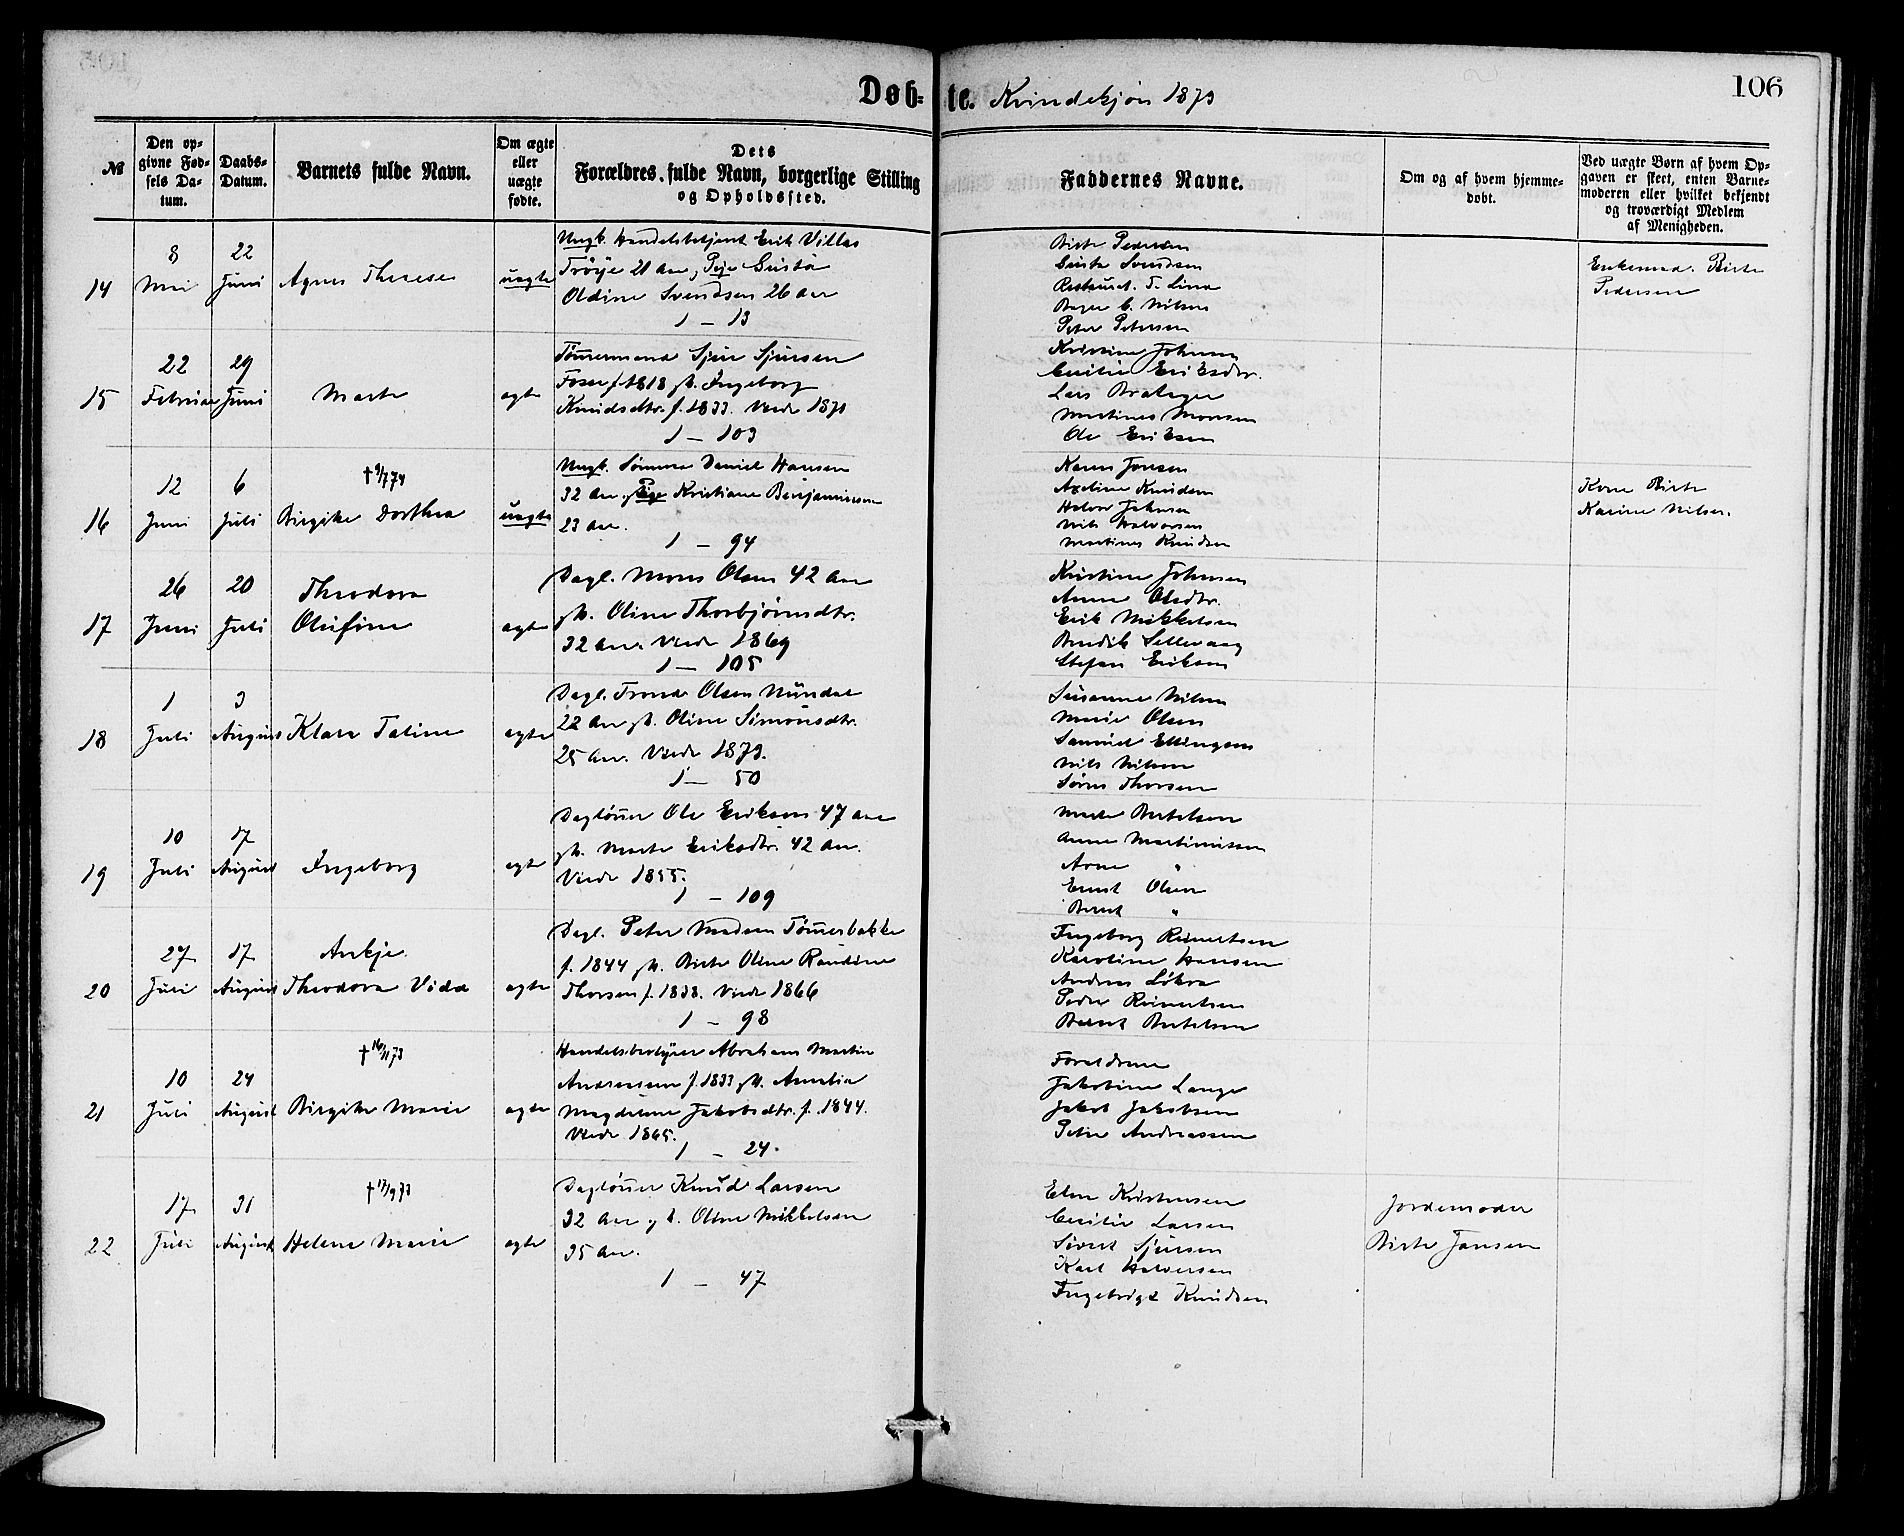 106
Døb-te. Kvindekjøn 1873
№
Den op-
givne Fød-
sels Da-
tum.
Daabs-
Datum.
Barnets fulde Navn.
Om ægte
eller
uægte
fødte.
Dets
Forældres fulde Navn, borgerlige Stilling
og Opholdssted.
Faddernes Navne.
Om og af hvem hjemme-
døbt.
Ved uægte Børn af hvem Op-
gaven er skeet, enten Barne-
moderen eller hvilket bekjendt
og troværdigt Medlem
af Menigheden.
14
8
Mai
22
Juni
Agnes Therese
uægte
Ungk. Handelsbetjent Erik Villas
Trøye 21 Aar, Pige Gusta
Oldine Svendsen 26 Aar
1 – 13
Birte Pedersen
Gusta Svendsen
T. Lind
C. Nilsen
Peter Petersen
Enkemad. Birte
Pedersen
15
22
Februar
29
Juni
Marta
ægte
Tømmermand Sjur Sjursen
Fosse f. 1818 h. Ingeborg
Knudsdtr. f. 1833. Viede 1871
1 – 103
Kristine Johnsen
Cecilie Eriksdtr.
Lars
Martines Monsen
Ole Eriksen
16
12
Juni
6
Juli
† 9/7 74
Birgithe Dorthea
uægte
Ungk. Sømand Daniel Hansen
32 Aar, Pige Kristiane Benjaminsen
23 Aar.
1 – 94
Karen Jonsen
Axeline Knudsen
Halvor Johnsen
Nils Halvorsen
Martines Knudsen
Kone Birte
Karine Nilsen.
17
26
Juni
20
Juli
Theodora
Olufine
ægte
Dagl. Mons Olsen 42 Aar
h. Oline Thorbjørnsdtr.
32 Aar. Viede 1869
1 – 105
Kristine Johnsen
Anne Olsdtr.
Erik Mikkelsen
Bendik Sellevaag
Stefan Eriksen
18
1
Juli
3
August
Klara Taline
ægte
Dagl. Trond Olsen Nundal
22 Aar h. Oline Simonsdtr.
25 Aar. Viede 1873.
1 – 50
Susanne Nilsen
Marie Olsen
Samuel Ellingsen
Nils Nilsen
Søren Thorsen
19
10
Juli
17
August
Ingeborg
ægte
Dagløner Ole Eriksen 47 Aar
h. Marte Eriksdtr. 42 Aar.
Viede 1855.
1 – 109
Marte Bertelsen
Anne Martinussen
Arne "
Ernst Olsen
Bernt "
20
27
Juli
17
August
Ankje
Theodora Vida
ægte
Dagl. Peter Madsen Tømmerbakke
f. 1844 h. Birte Oline Randine
Thorsen f. 1838. Viede 1866
1 – 98
Ingeborg Reinertsen
Karoline Hansen
Andreas Løkra
Peder Reinertsen
Bernt Bertelsen
21
10
Juli
24
August
† 16/11 73
Birgithe Marie
ægte
Handelsbestyrer Abraham Martin
Andreassen f. 1833 h. Amalia
Magdalene Jakobsdtr. f. 1844.
Viede 1865.
1 – 24.
Forældrene
Jakobine Lange
Jakob Jakobsen
Peter Andreassen
22
17
Juli
31
August
† 17/9 73
Helene Marie
ægte
Dagløner Knud Larsen
32 Aar h. Oline Mikkelsen
35 Aar.
1 – 47
Elen Kristensen
Cecilie Larsen
Sivert Sjursen
Karl Halvorsen
Ingebrigt Knudsen
Jordemoder
Birte Jansen